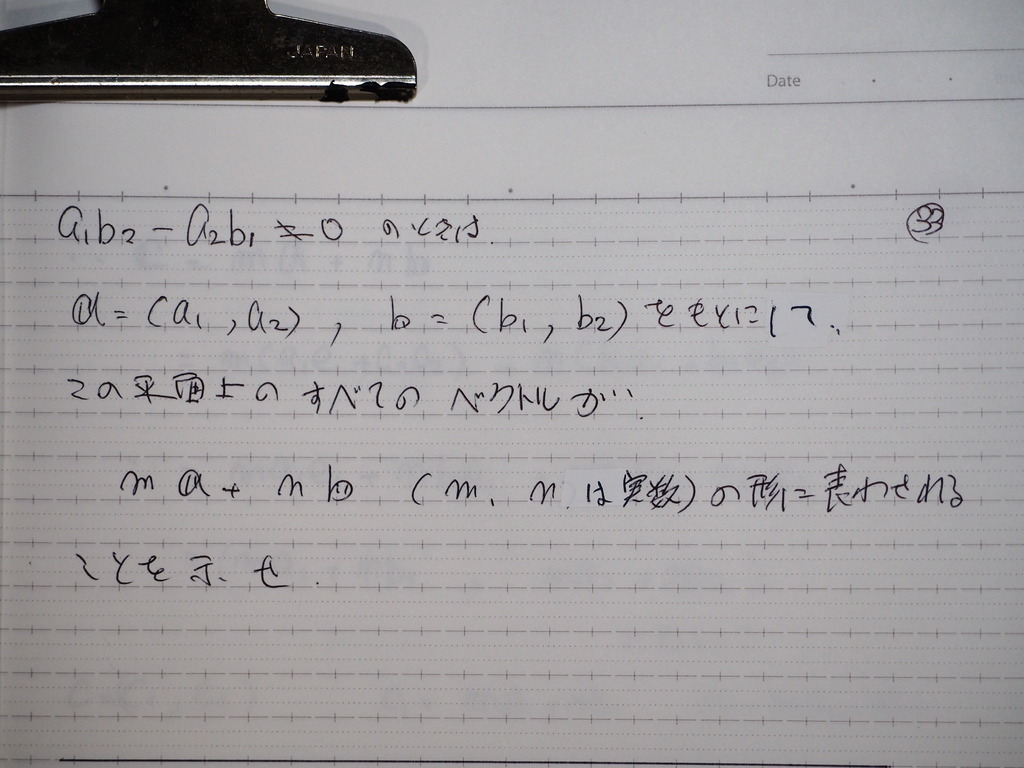 JAPAN
Date
a₁b₂ - a₂b₁ ≠ 0 のときは. 33
𝕒 = (a₁, a₂), 𝕓 = (b₁, b₂) をもとにして、
この平面上のすべてのベクトルが…
m𝕒 + n𝕓 (m, n は実数) の形に表わされる
ことを示せ.